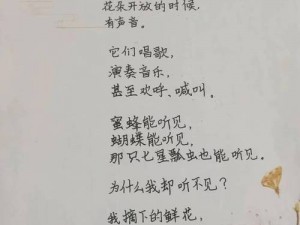 花朵开放的时候,
有声音。
它们唱歌,
演奏音乐,
甚至欢呼、喊叫。
蜜蜂能听见,
蝴蝶能听见,
那只七星瓢虫也能听见。
为什么我却听不见?
我摘下的鲜花,